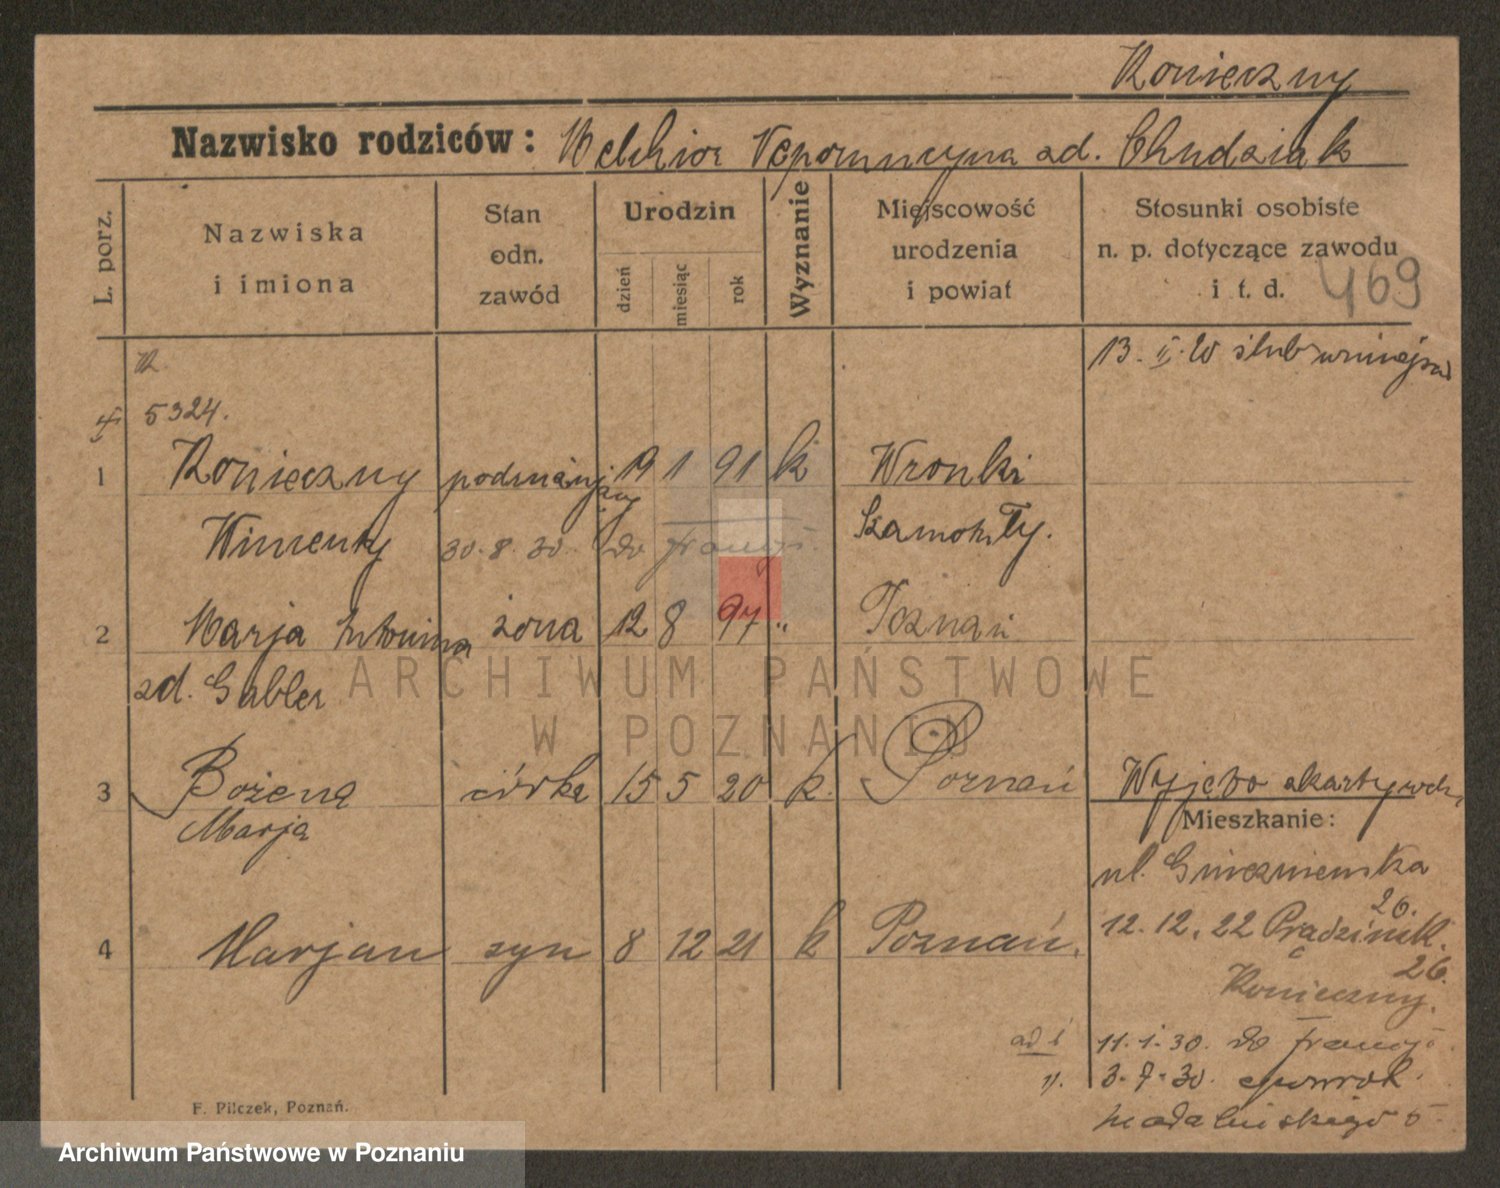 Konieczny
Nazwisko rodziców: Melchior Nepomucyna zd. Chudziak
L. porz.
Nazwiska
i imiona
Stan
odn.
zawód
Urodzin
dzień
miesiąc
rok
Wyznanie
Miejscowość
urodzenia
i powiat
Stosunki osobiste
n. p. dotyczące zawodu
i t. d.
469
13. II. 20 ślub w miejscu
5324.
1 Konieczny 19 1 91 k Wronki
Wincenty 30. 8. 30. do Francji. Szamotuły.
2 Marja Antonina żona 12 8 97 " Poznań
zd. Gabler
3 Bożena córka 15 5 20 k. Poznań
Marja
Wyjęto z karty
Mieszkanie:
ul. Gnieźnieńska
26.
4 Marjan syn 8 12 21 k Poznań.
12. 12. 22 Prądzińsk.
26.
Konieczny.
ad 1 11. 1. 30. do Francji
3. 7. 30. powrót.
Madalińskiego 5
F. Pilczek, Poznań.
ARCHIWUM PAŃSTWOWE
W POZNANIU
Archiwum Państwowe w Poznaniu